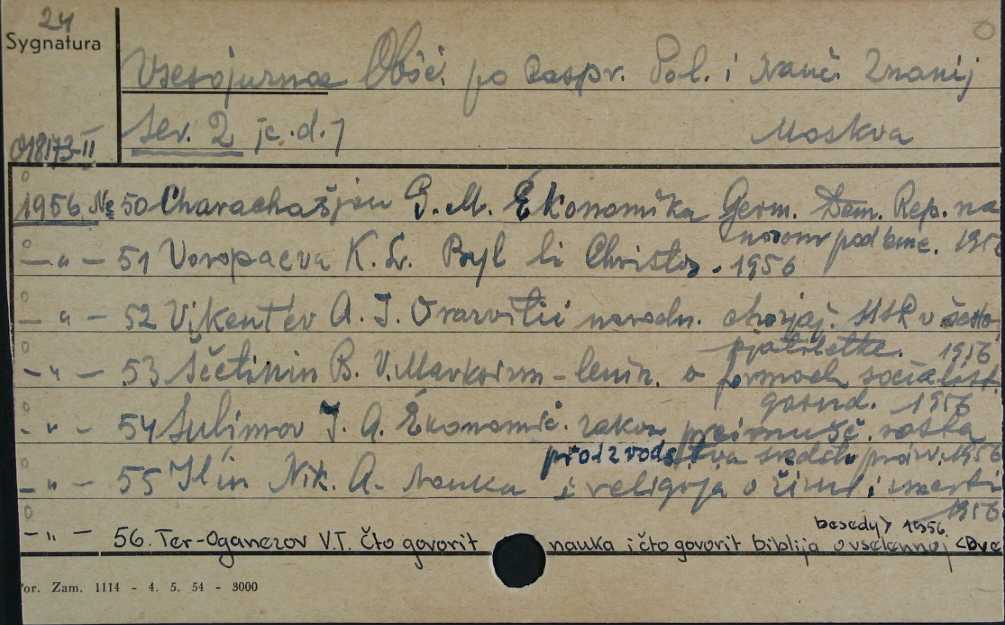 24
Sygnatura
Vsesojuznoe Obšč. po raspr. Pol. i nauč. Znanij
Ser. 2 /c.d./ Moskva
018173-II
1956 № 50 Charachašjan G. M. Ékonomika Germ. Dem. Rep. na
novom podъeme. 195
— " — 51 Voropaeva K. L. Byl li Christos. 1956
— " — 52 Vikent'ev A. I. O razvitii narodn. chozjaj. SSSR v šesto
pjatiletke. 1956
— " — 53 Ščetinin B. V. Marksizm-lenin. o formach socialist.
gosud. 1956
— " — 54 Sulimov I. A. Ékonomič. zakon preimušč. rosta
proizvodstva sredstv proizv. 1956
— " — 55 Il'in Nik. A. Nauka i religija o žizni i smerti
1956
besedy> 1956.
— " — 56. Ter-Oganezov V.T. Čto govorit nauka i čto govorit biblija o vselennoj <Dve
or. Zam. 1114 - 4. 5. 54 - 3000